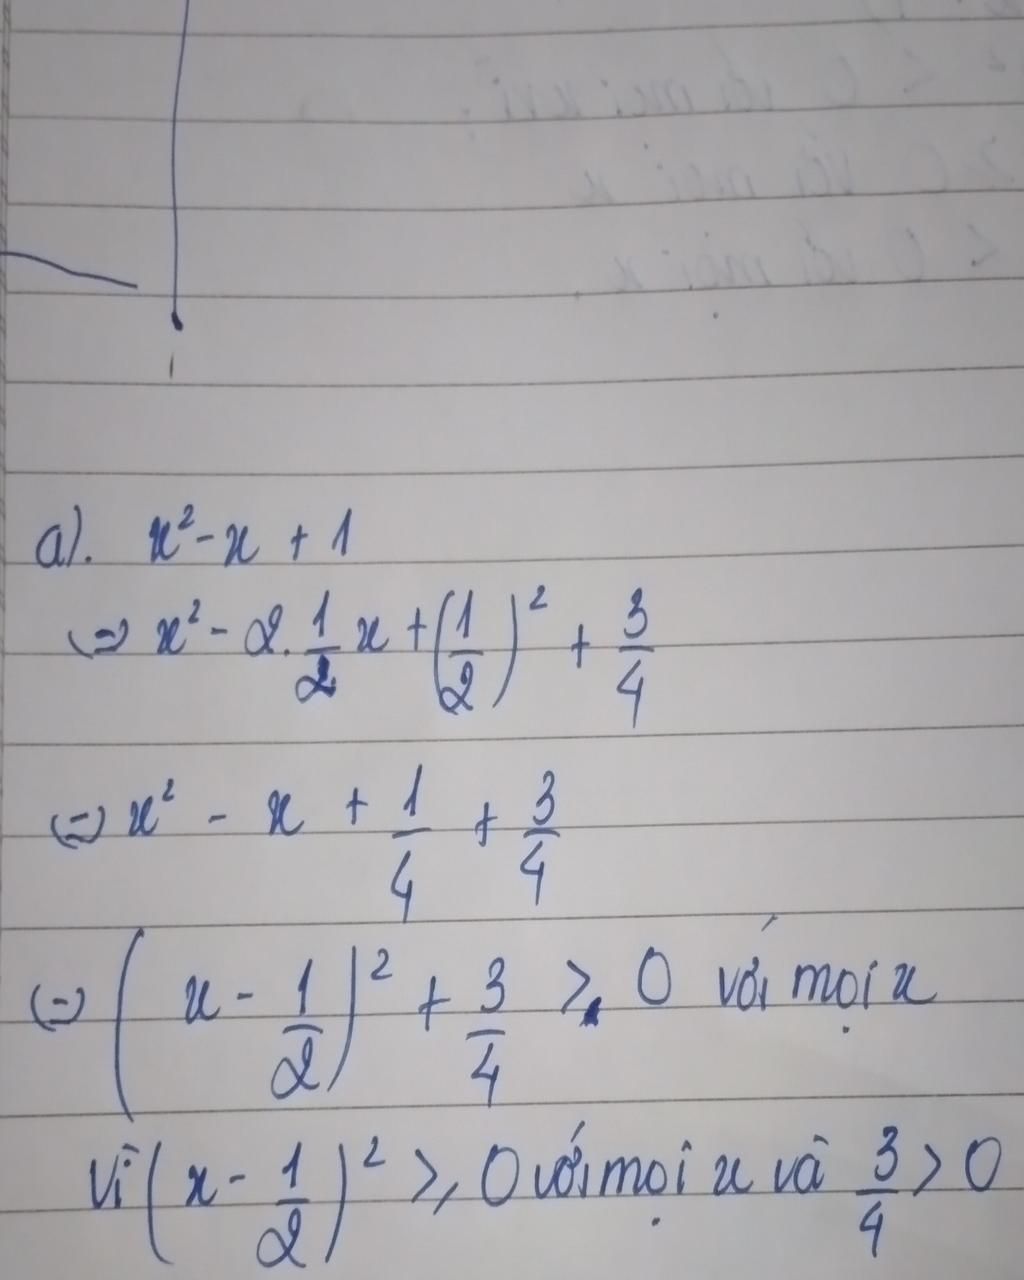 a). x² - x + 1
(=) x² - 2. 1/2 x + (1/2)² + 3/4
(=) x² - x + 1/4 + 3/4
(=) (x - 1/2)² + 3/4 > 0 với mọi x
Vì (x - 1/2)² ≥ 0 với mọi x và 3/4 > 0